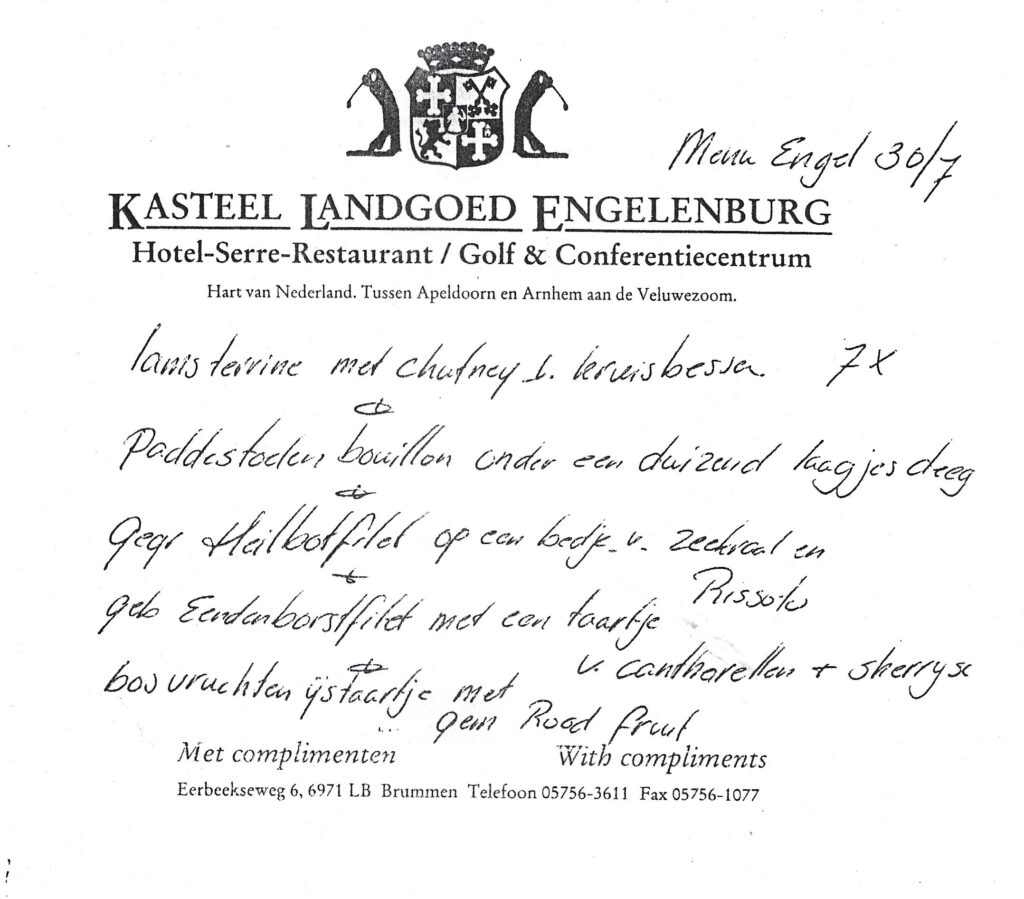 Menu Engel 30/7
KASTEEL LANDGOED ENGELENBURG
Hotel-Serre-Restaurant / Golf & Conferentiecentrum
Hart van Nederland. Tussen Apeldoorn en Arnhem aan de Veluwezoom.
lams terrine met chutney v. kruisbessen 7x
Paddestoelen bouillon onder een duizend laagjes deeg
gegr Heilbotfilet op een bedje v. zeekraal en
Rissoto
geb Eendenborstfilet met een taartje
v. cantharellen + sherry
bosvruchten ijstaartje met
gem Rood fruit
Met complimenten With compliments
Eerbeekseweg 6, 6971 LB Brummen Telefoon 05756-3611 Fax 05756-1077